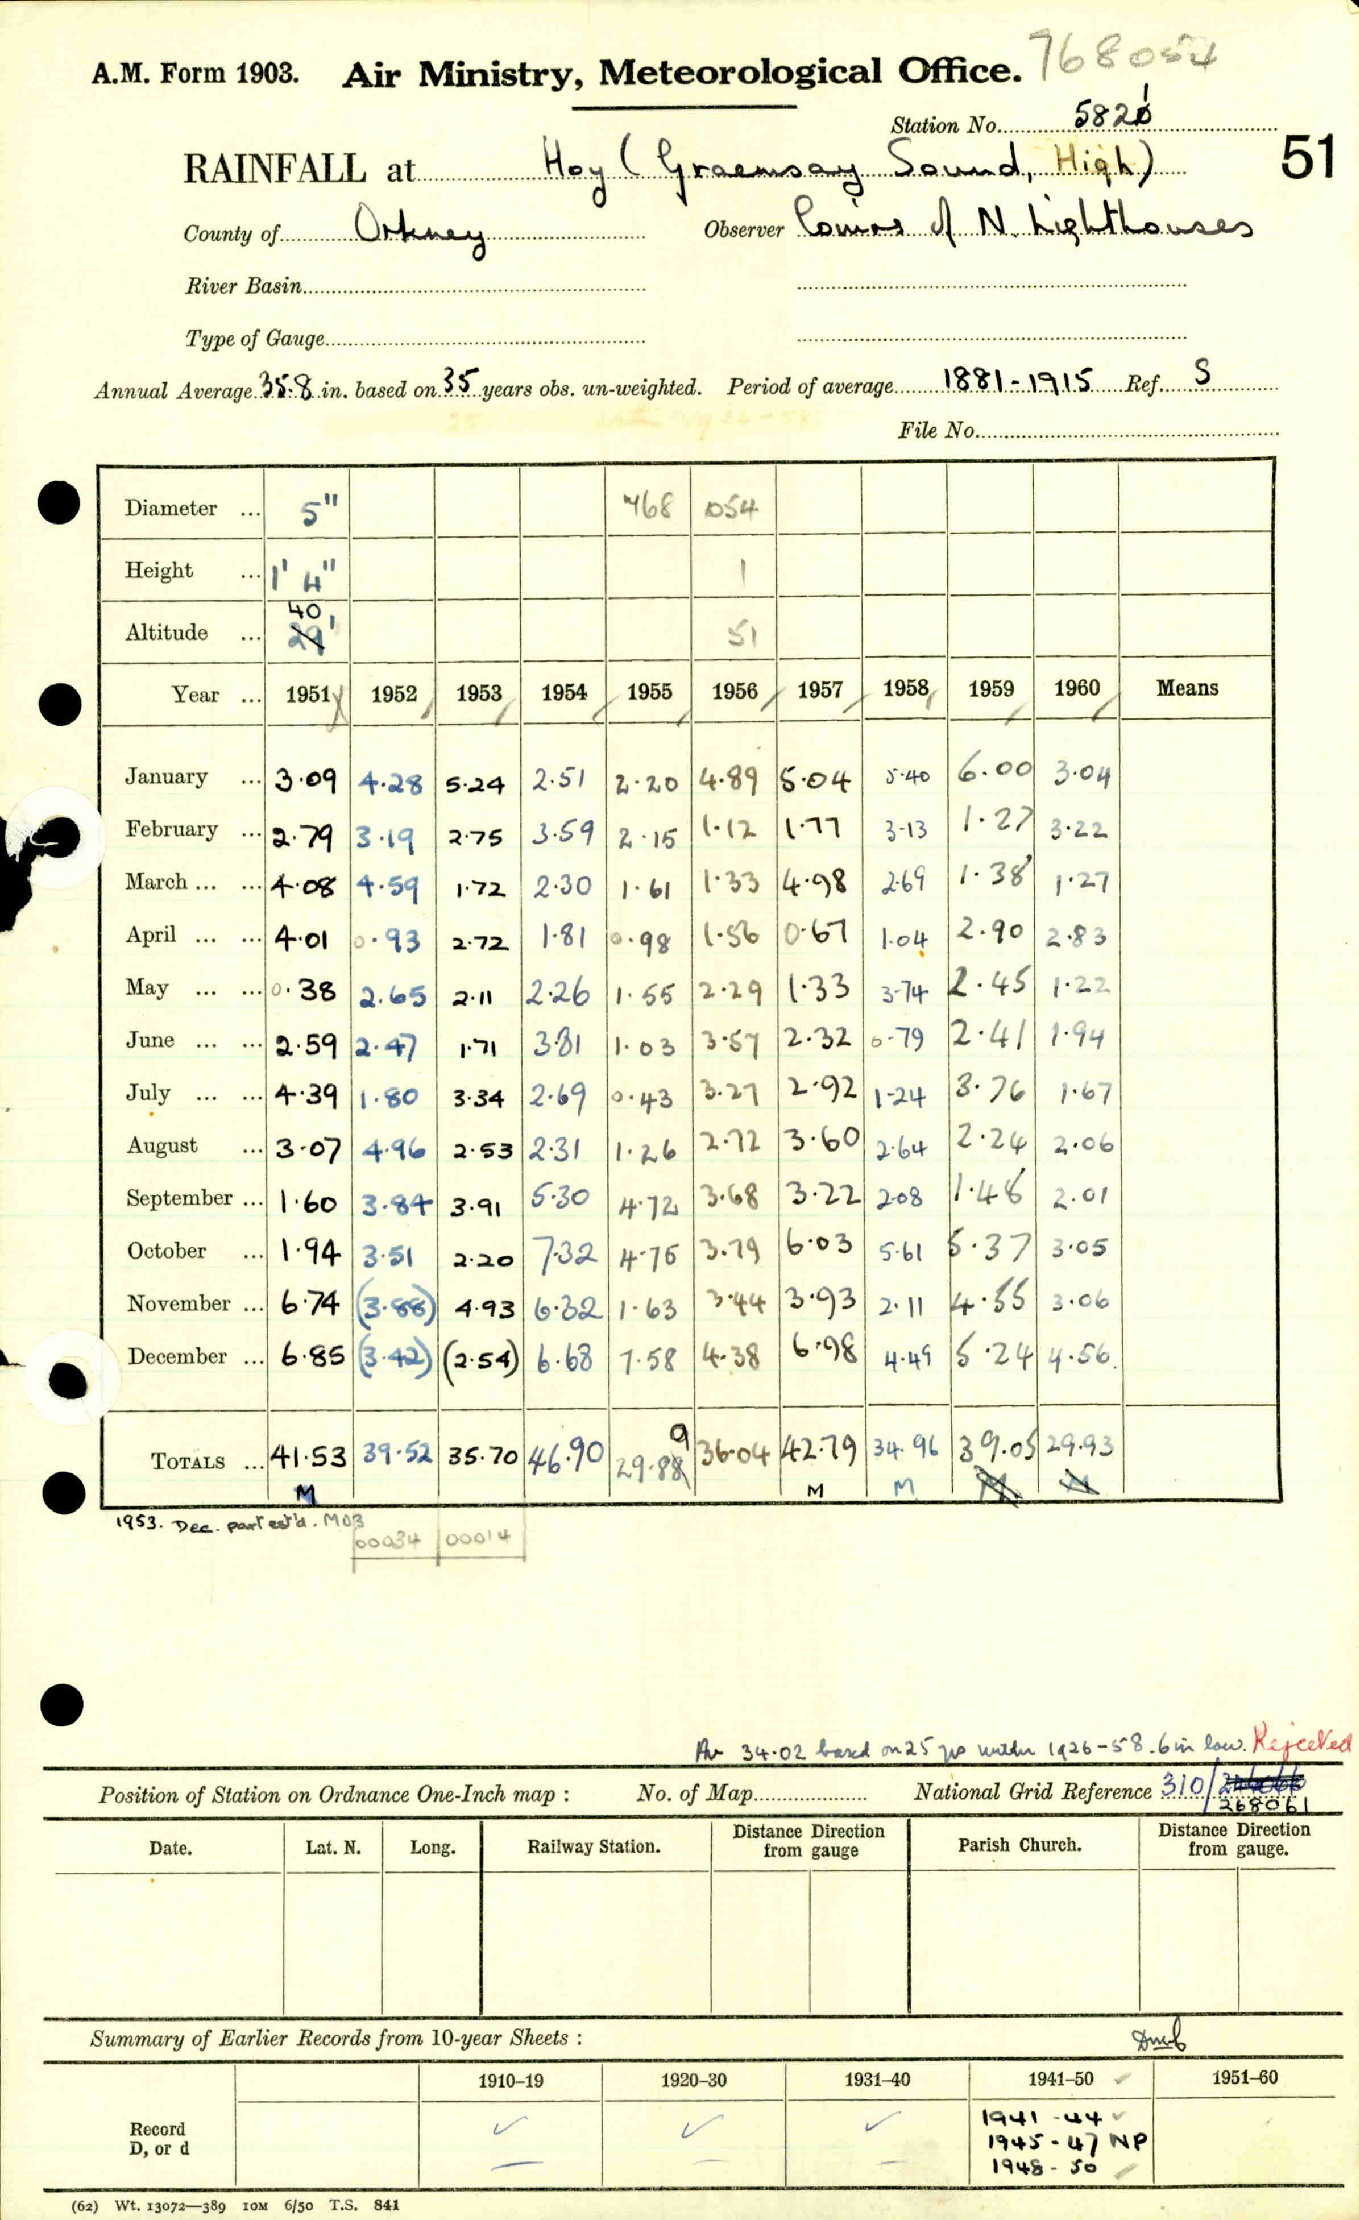 768054
A.M. Form 1903. Air Ministry, Meteorological Office.
Station No. 5821
RAINFALL at Hoy (Graemsay Sound, High) 51
County of Orkney Observer Comrs of N. Lighthouses
River Basin
Type of Gauge
Annual Average 35.8 in. based on 35 years obs. un-weighted. Period of average 1881-1915 Ref. S
File No.
Diameter ... 5" 768 054
Height ... 1' 4" 1
40
Altitude ... 29' 51
Year ... 1951 1952 1953 1954 1955 1956 1957 1958 1959 1960 Means
January ... 3.09 4.28 5.24 2.51 2.20 4.89 5.04 5.40 6.00 3.04
February ... 2.79 3.19 2.75 3.59 2.15 1.12 1.77 3.13 1.27 3.22
March ... ... 4.08 4.59 1.72 2.30 1.61 1.33 4.98 2.69 1.38 1.27
April ... ... 4.01 0.93 2.72 1.81 0.98 1.56 0.67 1.04 2.90 2.83
May ... ... 0.38 2.65 2.11 2.26 1.55 2.29 1.33 3.74 2.45 1.22
June ... ... 2.59 2.47 1.71 3.81 1.03 3.57 2.32 0.79 2.41 1.94
July ... ... 4.39 1.80 3.34 2.69 0.43 3.27 2.92 1.24 3.76 1.67
August ... 3.07 4.96 2.53 2.31 1.26 2.72 3.60 2.64 2.24 2.06
September ... 1.60 3.84 3.91 5.30 4.72 3.68 3.22 2.08 1.48 2.01
October ... 1.94 3.51 2.20 7.32 4.75 3.79 6.03 5.61 5.37 3.05
November ... 6.74 (3.88) 4.93 6.32 1.63 3.44 3.93 2.11 4.55 3.06
December ... 6.85 (3.42) (2.54) 6.68 7.58 4.38 6.98 4.49 5.24 4.56
9
TOTALS ... 41.53 39.52 35.70 46.90 29.88 36.04 42.79 34.96 39.05 29.93
M M M M M
1953. Dec. part est'd. MO3
00034 00014
Av 34.02 based on 25 yrs within 1926-58. 6in low. Rejected
Position of Station on Ordnance One-Inch map : No. of Map National Grid Reference 310/
268061
Date. Lat. N. Long. Railway Station. Distance from gauge Direction Parish Church. Distance from gauge. Direction
Summary of Earlier Records from 10-year Sheets :
1910–19 1920–30 1931–40 1941–50 1951–60
Record D, or d ✓ ✓ ✓ 1941-44 ✓
1945-47 NP
1948-50 ✓
(62) Wt. 13072—389 10M 6/50 T.S. 841